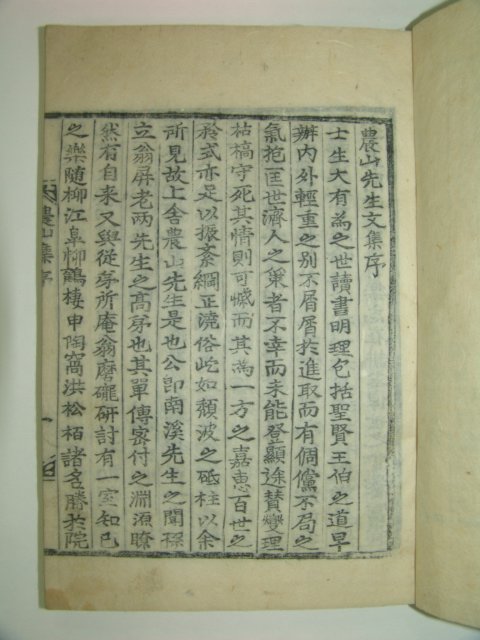 農山先生文集序
士生大有為之世讀書明理包括聖賢王伯之道早
辦內外輕重之別不屑屑於進取而有倜儻不局之
氣抱匡世濟人之策者不幸而未能登顯途贊燮理
枯槁守死其情則可慽而其為一方之嘉惠百世之
矜式亦足以振紊綱正澆俗屹如頹波之砥柱以余
所見故上舍農山先生是也公即南溪先生之聞孫
立翁屏老兩先生之高弟也其單傳密付之淵源瞭
然有自來又與從弟所庵翁磨礲硏討有一室知己
之樂隨柳江皐柳鶴棲申陶窩洪松栢諸名勝於院
農山集序
一